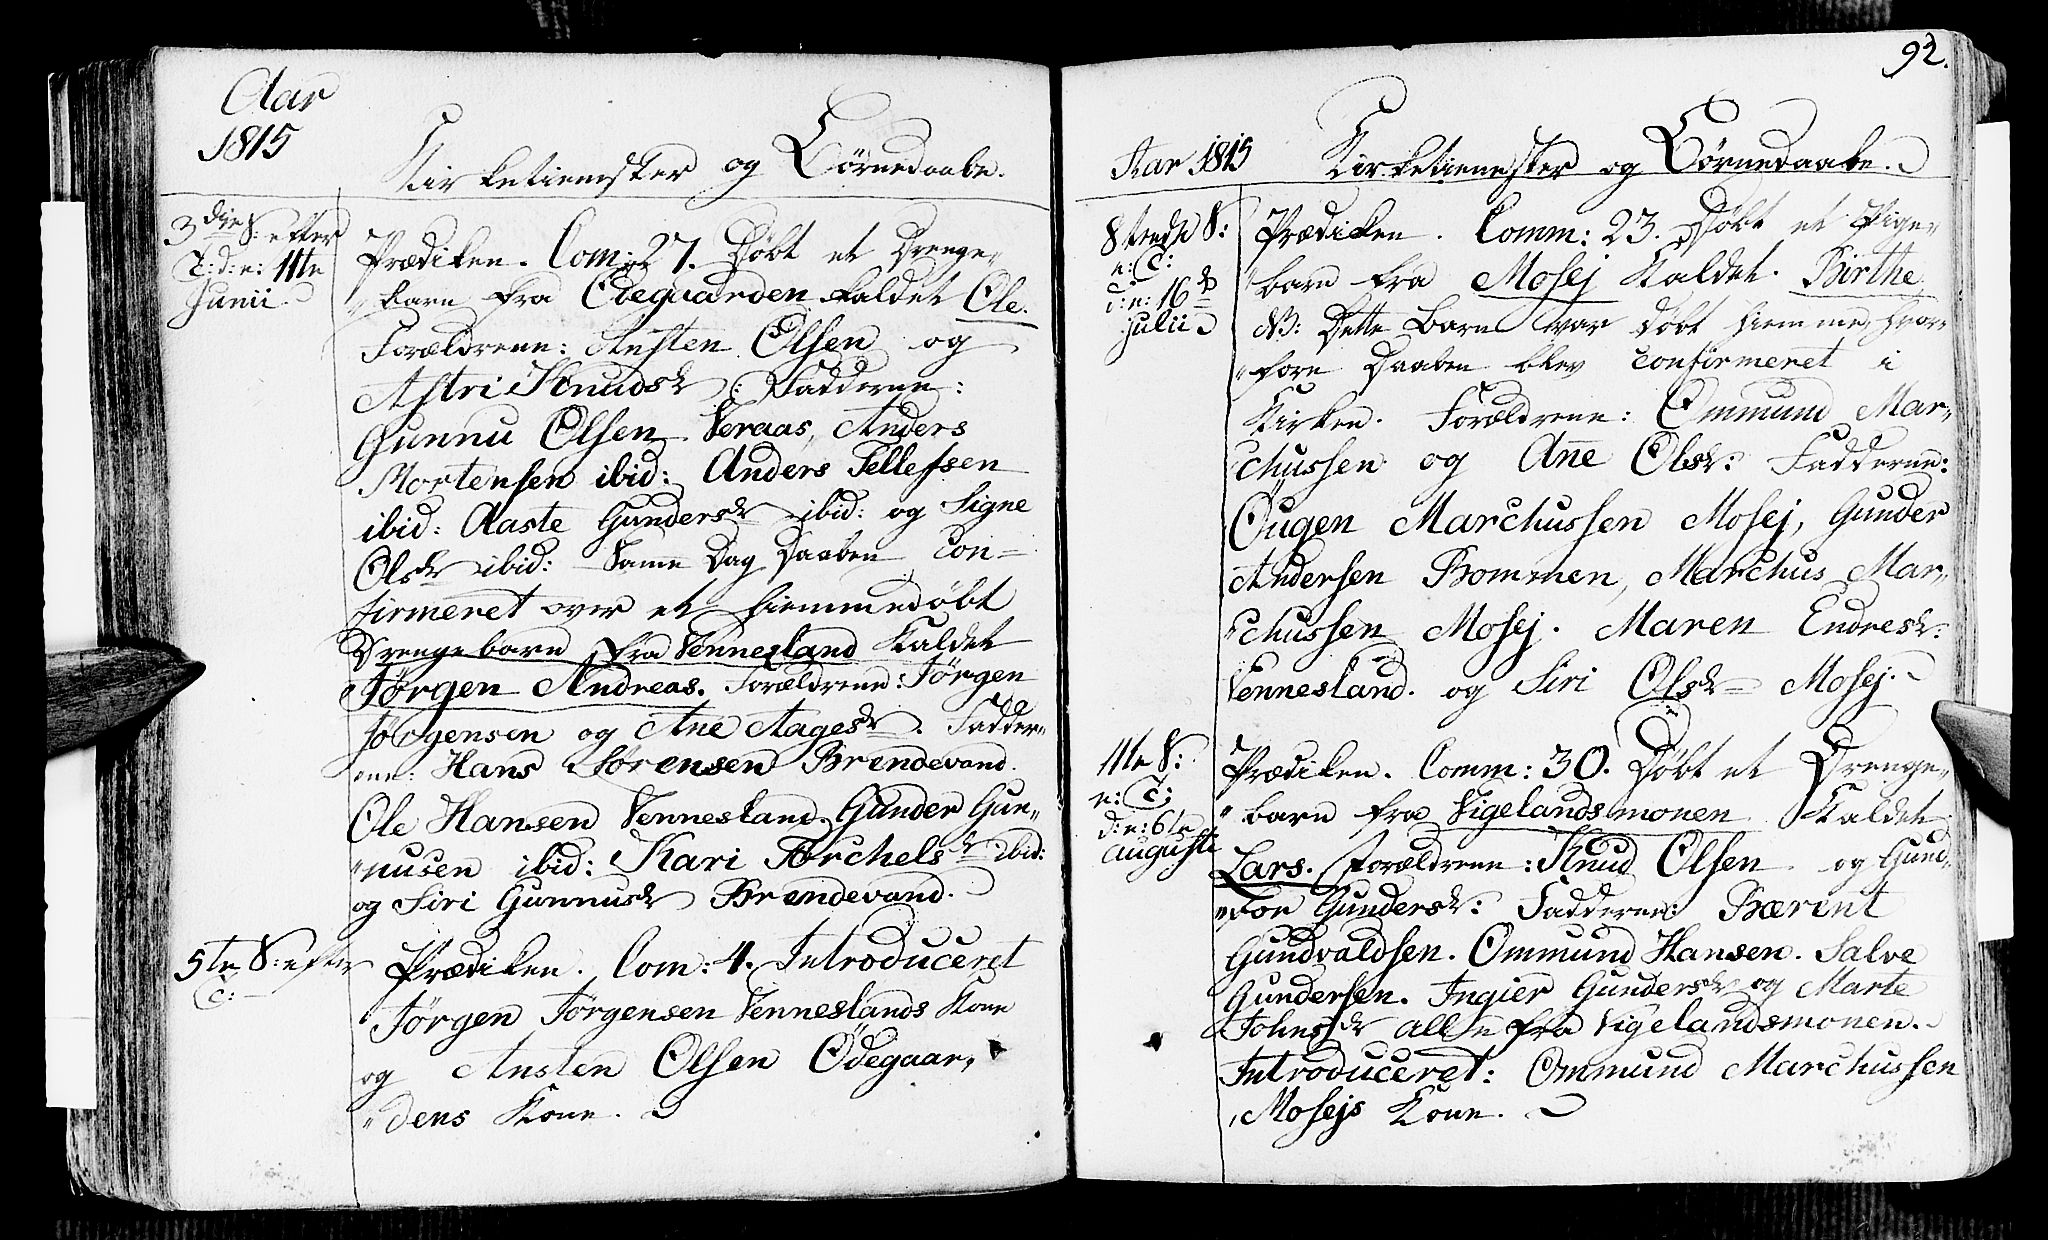 Aar
1815
Kirketienester og Börnedaabe.
3die S: efter
T: d: e: 11te
Junii.
Prædiken. Com: 27. Döbt et Drenge„
„barn fra Ödeguarden kaldet Ole.
Forældrene: Ansten Olsen og
Astri Knudsdr: Fadderne:
Gunnu Olsen Veraas, Anders
Mortensen ibid: Anders Tellefsen
ibid: Aaste Gundersdr ibid: og Signe
Olsdr ibid: Samme Dag Daaben con-
firmeret over et hiemmedöbt
Drengebarn fra Vennesland kaldet
Jörgen Andreas. Forældrene: Jörgen
Jörgensen og Ane Aagesdr. Fadder„
„ne: Hans Sörensen Brendevand.
Ole Hansen Vennesland. Gunder Gun„
„nusen ibid: Kari Torchelsdr ibid:
og Siri Gunnusdr Brendevand.
5te S: efter
T:
Prædiken. Com: 4. Introduceret
Jörgen Jörgensen Venneslands Kone
og Ansten Olsen Ödegaar„
„dens Kone.
92.
Aar 1815
Kirketienester og Börnedaabe.
8tende S:
e: T:
d: e: 16d
Julii
Prædiken. Comm: 23. Döbt et Pige„
„barn fra Mosej kaldet Birthe
NB: Dette Barn var döbt hiemme, hvor„
„fore Daaben blev confirmeret i
Kirken. Forældrene: Ommund Mar„
„chussen og Ane Olsdr: Fadderne:
Öugen Marchussen Mosej, Gunder
Andersen Bommen, Marchus Mar„
„chussen Mosej. Maren Endresdr:
Vennesland. og Siri Olsdr Mosej.
11te S:
e: T:
d: e: 6te
Augusti
Prædiken. Comm: 30. Döbt et Drenge„
„barn fra Vigelandsmonen kaldet
Lars. Forældrene: Knud Olsen og Gund„
„vor Gundersdr: Fadderne: Bærint
Gundvaldsen. Ommund Hansen. Salve
Gundersen. Ingier Gundersdr og Marte
Johnsdr alle fra Vigelandsmonen.
Introduceret: Ommund Marchussen
„Mosejs Kone.